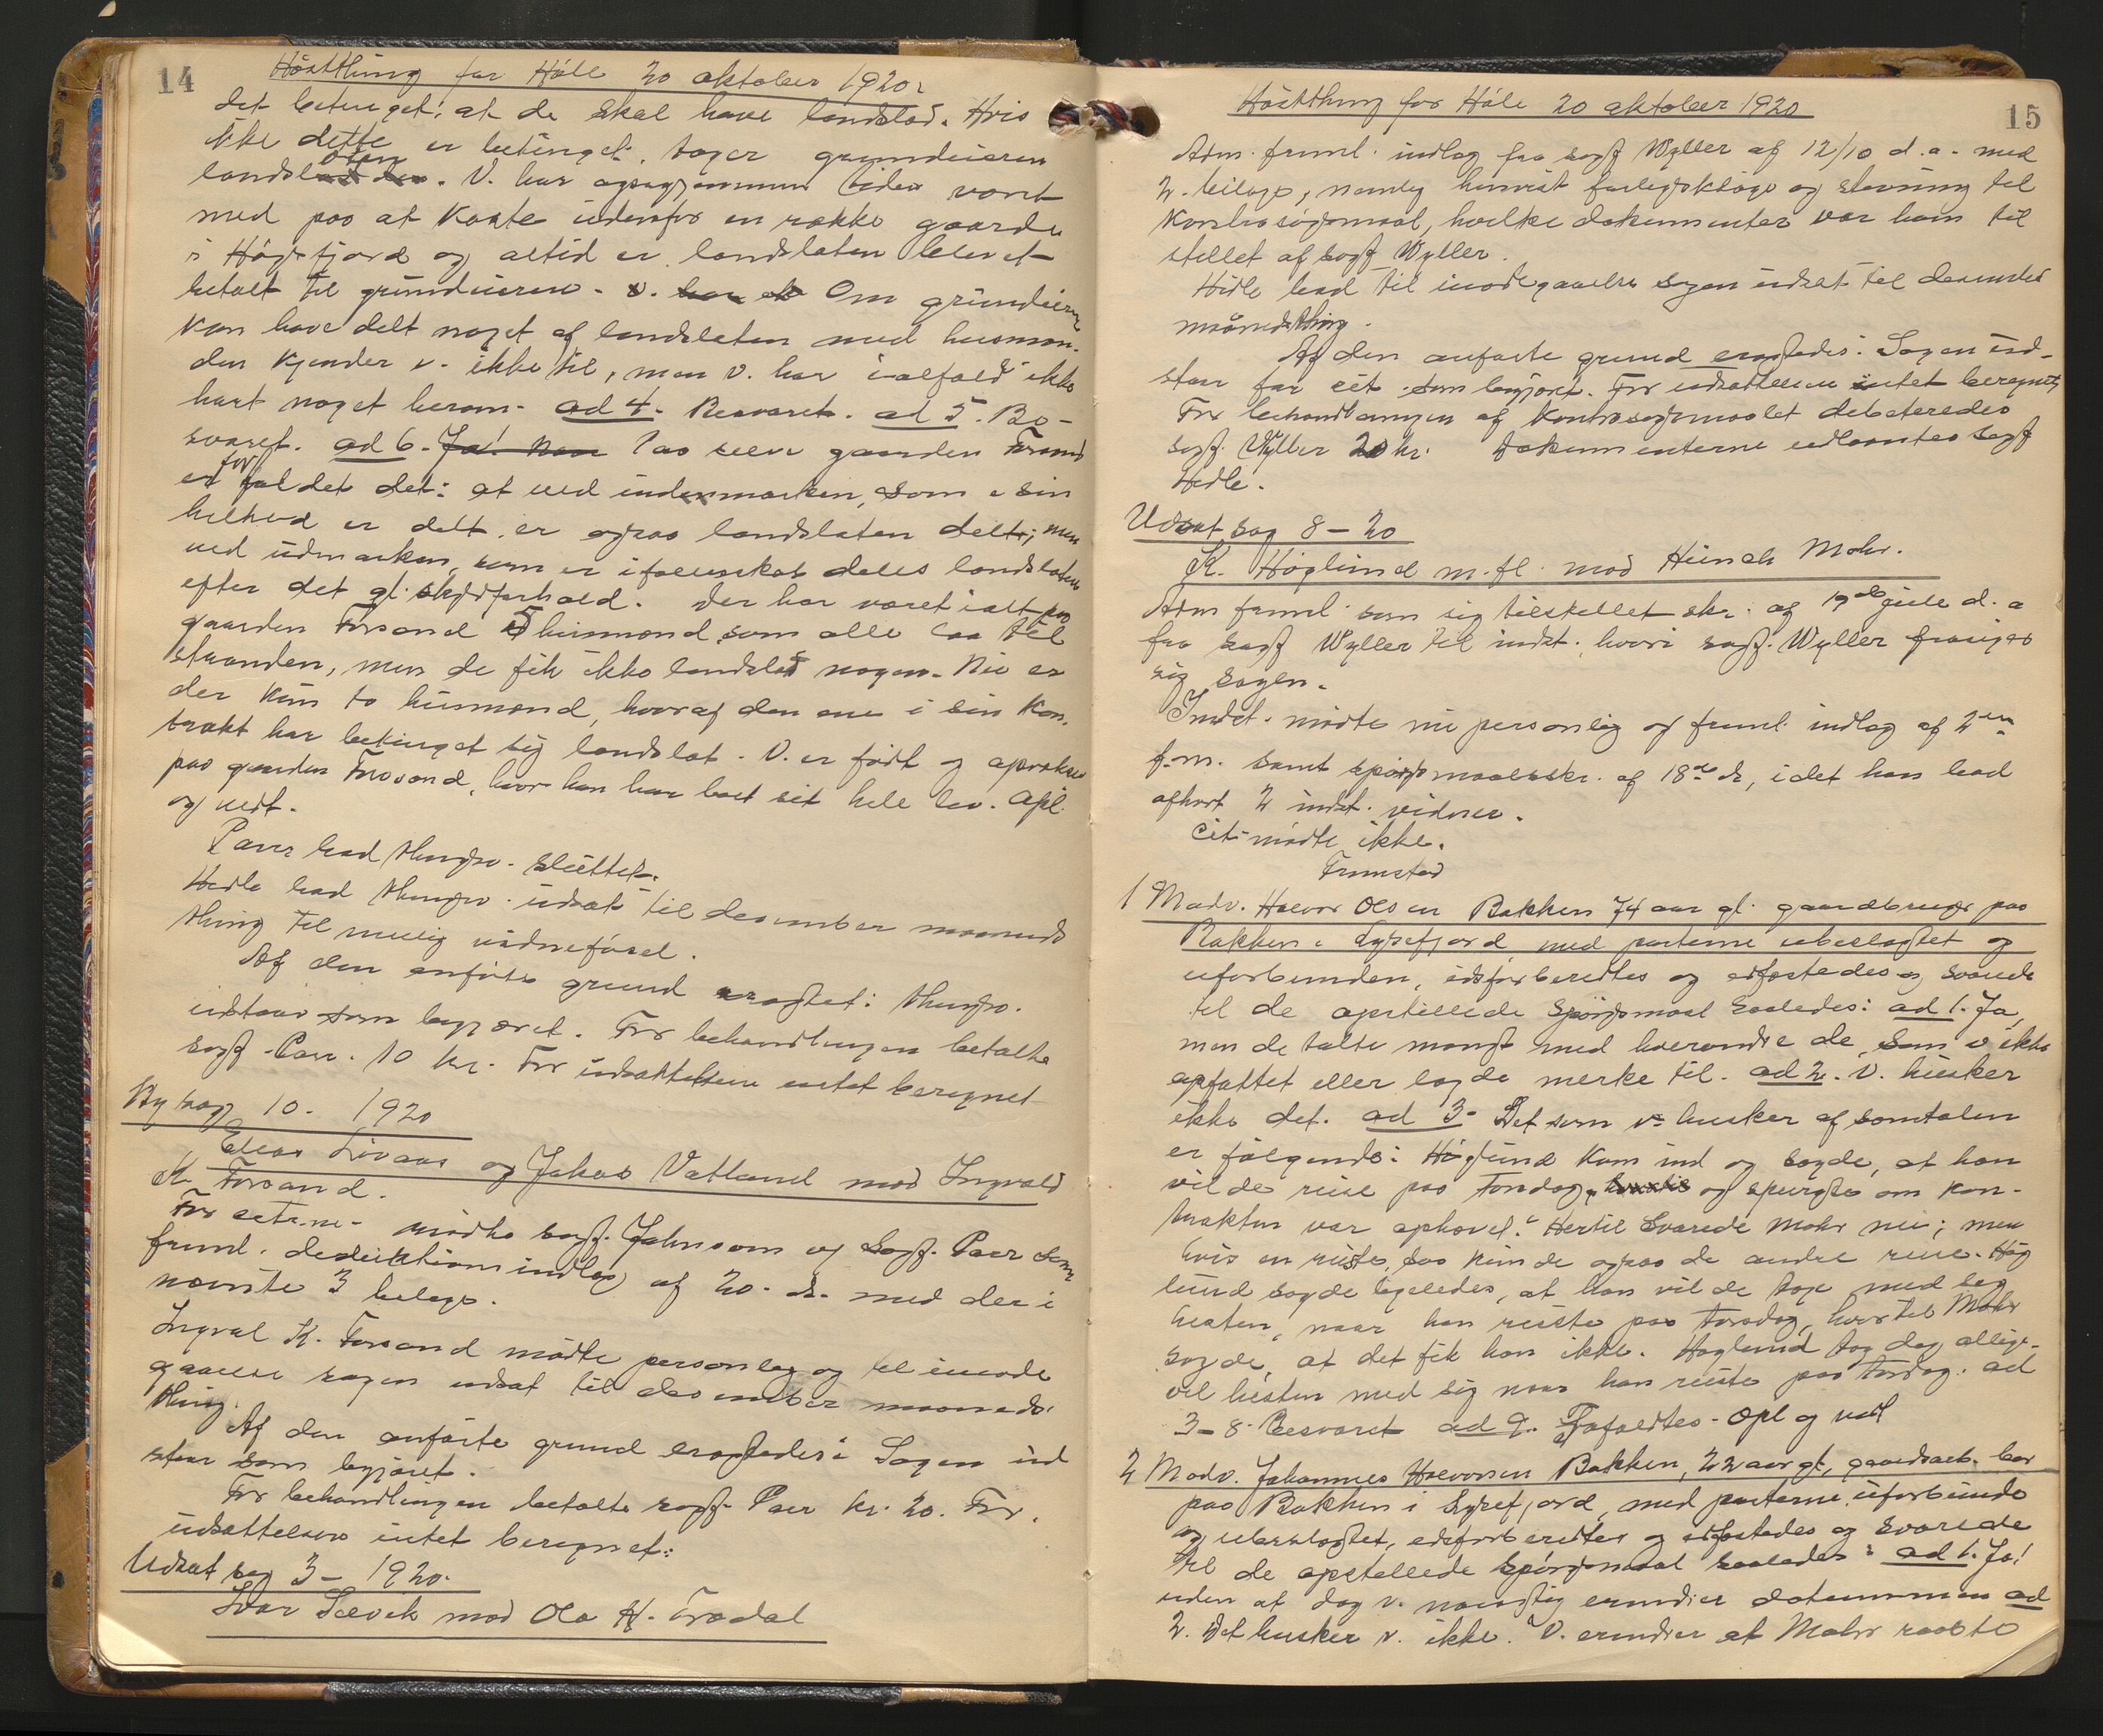 14
Hösttthing for Höle 20 oktober 1920.
det betinget: at de skal have landslod. Hvis
ikke dette er betinget, tager grundeieren
landsloten. V. har ogsaa gjennem tider været
med paa at kaste udenfor en række gaarde
i Högsfjord og altid er landsloten blevet
betalt til grundeieren. Om grundeieren
kan have delt noget af landsloten med husman-
den kjender v. ikke til, men v. har ialfald ikke
hørt noget herom. ad 4. Besvaret. ad 5. Be-
svaret. ad 6. Paa selve gaarden Forsand
er forholdet det: at ved indenmarken, som i sin
helhed er delt, er ogsaa landsloten delt; men
ved udmarken, som er i fællesskab deles landsloten
efter det gl. skyldforhold. Der har været ialt paa
gaarden Forsand 5 husmænd som alle laa til
stranden, men de fik ikke landslod nogen. Nu er
der kun to husmænd, hvoraf den ene i sin kon-
trakt har betinget sig landslot. V. er født og opvokset
paa gaarden Forsand, hvor han har boet sit hele lev. Opl.
og vedt.
Paer bad thingsv. sluttet.
Hidle bad thingsv. udsat til desember maaneds
thing til mulig vidneførsel.
Af den anførte grund eragtet: Thingsv.
udstaar som begjæret. For behandlingen betalte
sagf. Paer. 10 kr. For udsættelsen intet beregnet
Ny sag 10. 1920
Elias Løvaas og Jakob Vatland mod Ingvald
K. Forsand.
For citne. mødte sagf. Johnsom og Sagf. Paer som
freml. deduktionsindlæg af 20. ds. med deri
nævnte 3 bilage.
Ingval K. Forsand mødte personlig og til imøde
gaaelse sagen udsat til desember maaneds-
thing.
Af den anførte grund eragtedes: Sagen ud
staar som begjæret.
For behandlingen betalte sagf. Paer kr. 20. For
udsættelsen intet beregnet:
Udsat sag 3 – 1920.
Ivar Sævik mod Ola H. Frødal
15
Hösttthing for Höle 20 oktober 1920
Adm. freml. indlæg fra sagf Wyller af 12/10 d.a. med
2. bilage, namlig henvist forligsklage og stevning til
kontrasøgsmaal, hvilke dokumenter var ham til
stillet af sagf Wyller.
Hidle bad til imødegaaelse sagen udsat til desember
måndsthing.
Af den anførte grund eragtedes: Sagen ud-
staar for cit som begjæret. For udsættelsen intet beregnet
For behandlingen af kontrasøgsmaalet debeteredes
sagf. Wyller 20 kr. Dokumenterne udlaantes sagf
Hidle.
Udsat sag 8 – 20
K. Höglund m.fl. mod Hinch Mohr.
Adm freml. som sig tilstillet skr. af 19de jule d.a
fra sagf Wyller til indst. hvori sagf. Wyller frasiges
sig sagen.
Indst. mødte nu personlig og freml. indlæg af 2den
f.m. samt spörgsmaalsskr. af 18de ds, idet han bad
afhørt 2 indst. vidner.
Cit. mødte ikke.
Fremstod
1 Modv. Halvor Olsen Bakken 74 aar gl. gaardbruger paa
Bakken i Lysefjord, med parterne ubeslægtet og
uforbunden, edsforberedtes og edfæstedes og svarede
til de opstillede spörgsmaal saaledes: ad 1. Ja,
men de talte mangt med hverandre de, som v ikke
opfattet eller lagde merke til. ad 2. V. husker
ikke det. ad 3. Det som v. husker af samtalen
er følgende: Höglund kom ind og sagde, at han
vilde reise paa torsdag, og spurgte om kon-
trakten var ophævet. Hertil svarede Mohr nei; men
hvis en reiste, saa kunde ogsaa de andre reise. Hög
lund sagde ligeledes, at han vilde tage med seg
hesten, naar han reiste paa torsdag, hvortil Mohr
sagde, at det fik han ikke. Höglund tog dog allige-
vel hesten med sig naar han reiste paa torsdag. ad
3 – 8. Besvaret ad 9. Frafaldtes. Opl og vedt
2 Modv. Johannes Halvorsen Bakken, 22 aar gl, gaardsarb. bor
paa Bakken i Lysefjord, med parterne uforbunde
og ubeslægtet, edsforberedtes og edfæstedes og svarede
til de opstillede spörgsmaal saaledes: ad 1. Ja!
uden at dog v. nøiagtig erindrer datummen ad
2. Det husker v. ikke. V. erindrer at Mohr raabte